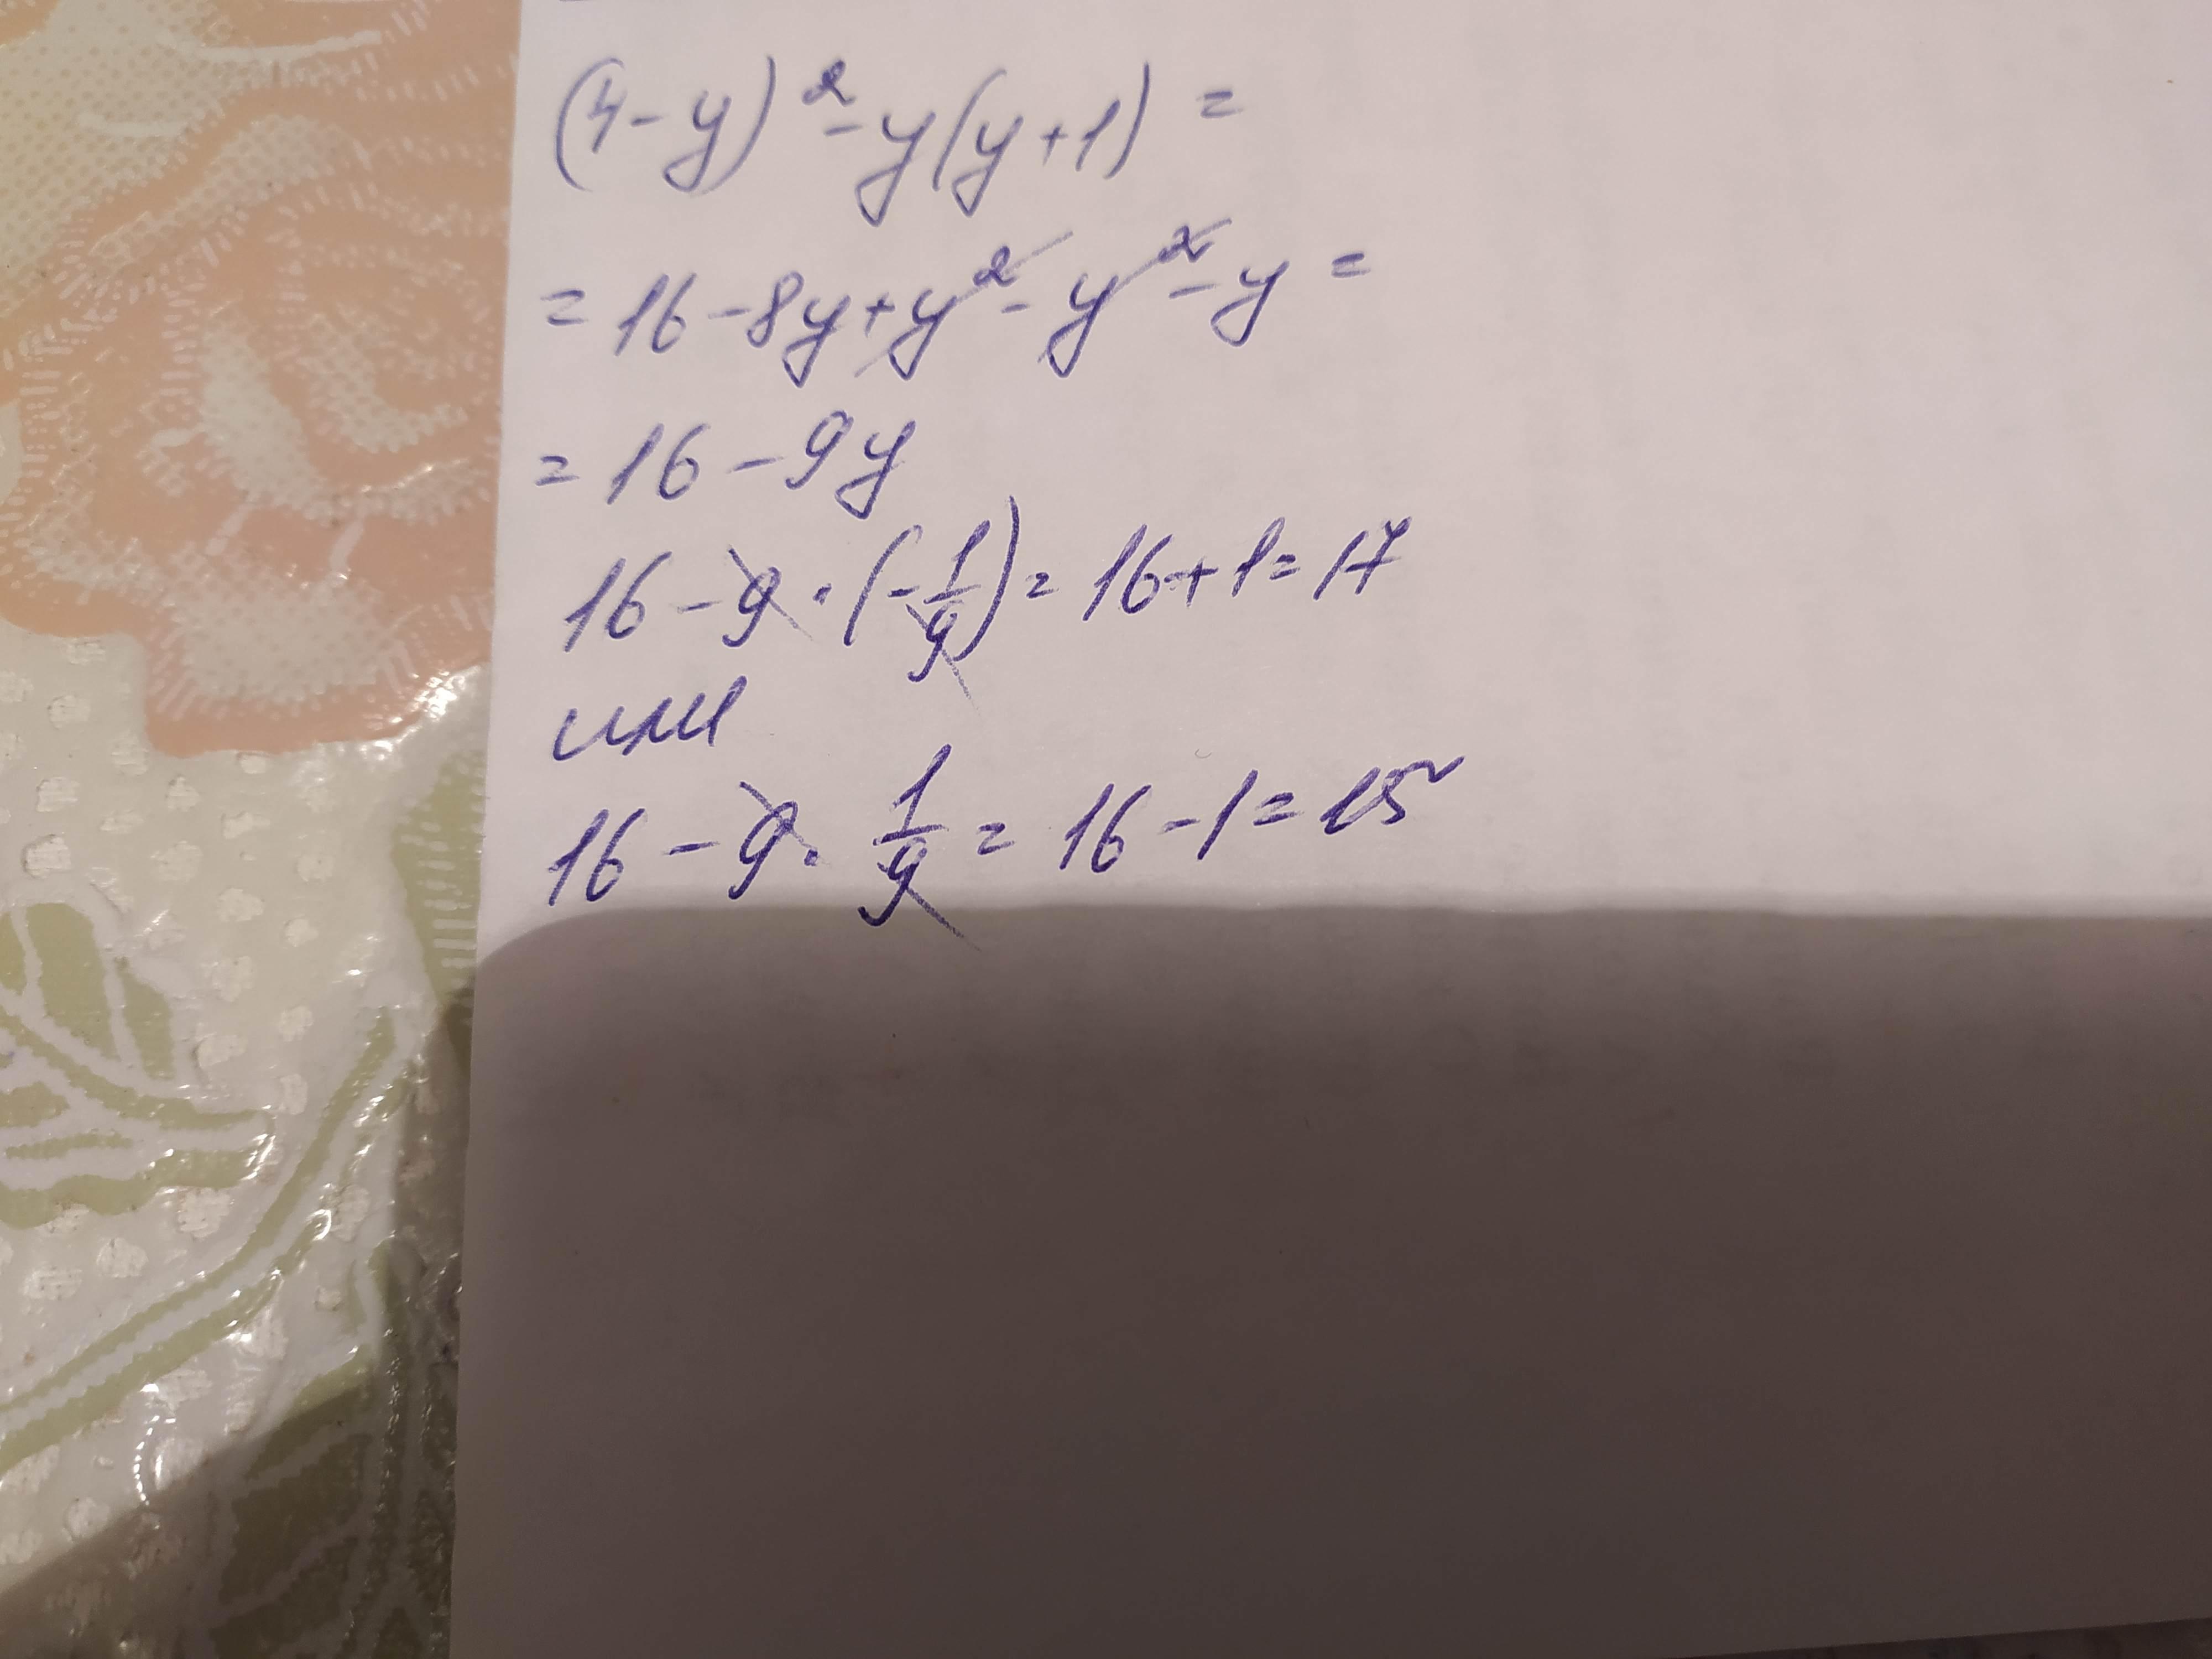 (4-y)² - y(y+1) =
= 16 - 8y + y² - y² - y =
= 16 - 9y
16 - 9 · (-1/9) = 16 + 1 = 17
или
16 - 9 · 1/9 = 16 - 1 = 15